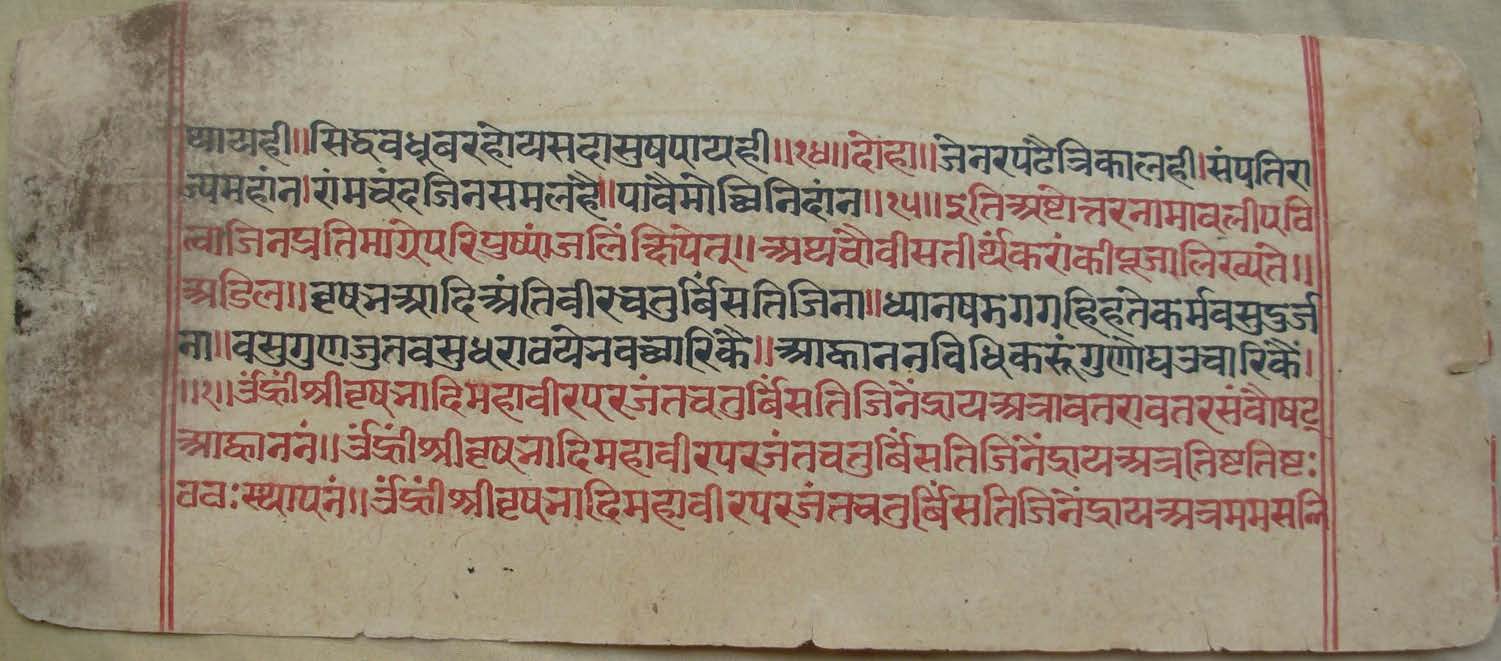 ध्यायही॥सिद्धवधूबरहोयसदासुषपायही॥१४॥दोहा॥जेनरपढैत्रिकालही।संपतिरा
ज्यमहांन।रांमचंदजिनसमलहै॥पावैमोछिनिदांन॥१५॥इतिअष्टोत्तरनामावलीपवि
त्वाजिनप्रतिमाग्रेपरिपुष्पांजलिंक्षिपेत्॥अथचौवीसतीर्थंकरांकीपूजालिख्यंते॥
अडिल॥वृषभआदिअंतिवीरचतुर्विंसतिजिना॥ध्यानषडगगहिहंतेकर्मवसुदुर्ज
ना॥वसुगुणजुतवसुधरावयेभवछारिकै॥आह्वाननविधिकरूंगुणौघउचारिकैं।
॥१॥ॐह्रींश्रीवृषभादिमहावीरपरजंतचतुर्विंसतिजिनेंद्रायअत्रावतरावतरसंवौषट्
आह्वाननं॥ॐह्रींश्रीवृषभादिमहावीरपरजंतचतुर्विंसतिजिनेंद्रायअत्रतिष्टतिष्टः
ठठःस्थापनं॥ॐह्रींश्रीवृषभादिमहावीरपरजंतचतुर्विंसतिजिनेंद्रायअत्रममसन्नि